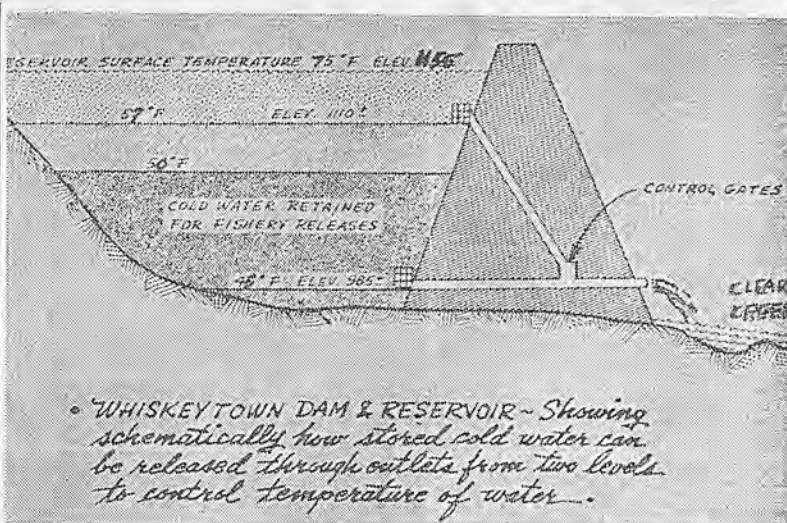 ESERVOIR SURFACE TEMPERATURE 75°F ELEV.
57°F ELEV. 1110±
50°F
COLD WATER RETAINED
FOR FISHERY RELEASES
CONTROL GATES
48°F ELEV. 965-
CLEAR
• WHISKEYTOWN DAM & RESERVOIR ~ Showing
schematically how stored cold water can
be released through outlets from two levels
to control temperature of water.